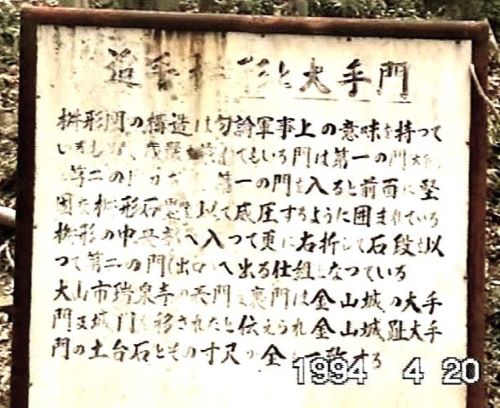 追手桝形と大手門
桝形門の構造は勿論軍事上の意味を持つて
いる
門は第一の門
第二の 第一の門を入ると前面に堅
固な桝形石塁を以て威圧するように囲まれている
桝形の中央部へ入つて更に右折して石段を以
つて第二の門(出口)へ出る仕組となつている
犬山市瑞泉寺の 門 裏門は金山城の大手
門及城門を移されたと伝えられ金山城趾大手
門の土台石とその寸尺が全 致する
1994 4 20